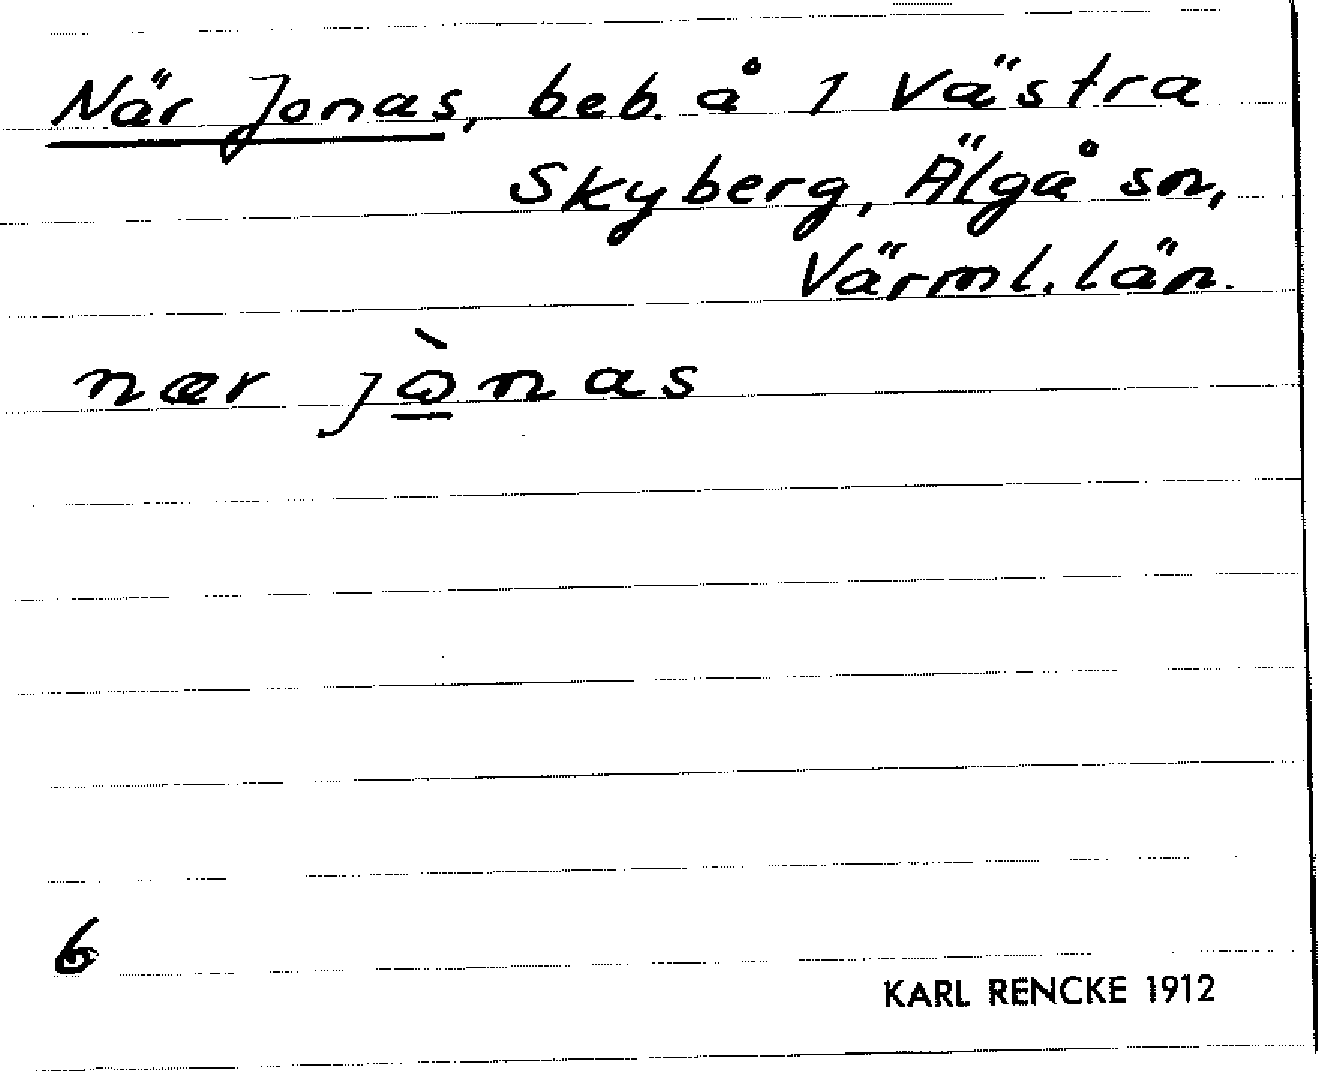 När Jonas, beb. å 1 Västra
Skyberg, Älgå sn,
Värml. län.
nær jònas
6
KARL RENCKE 1912